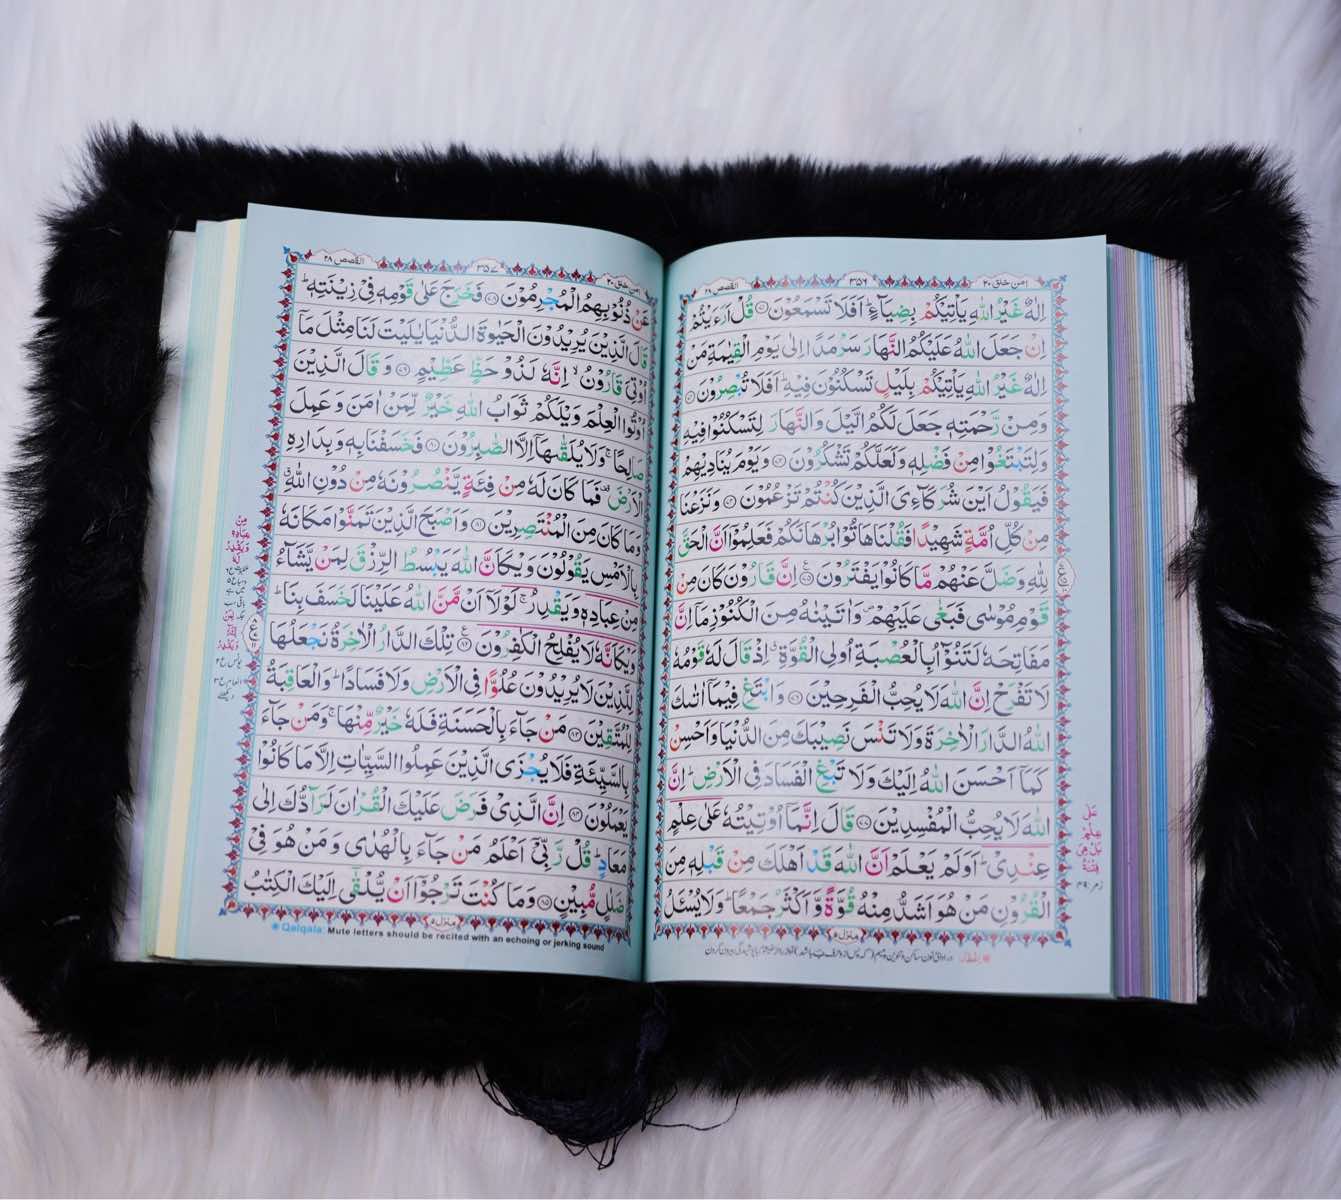 امن خلق ۲۰
۳۵۶
القصص ۲۸
اِلٰهٌ غَيْرُ اللّٰهِ يَاْتِيْكُمْ بِضِيَآءٍ ؕ اَفَلَا تَسْمَعُوْنَ ﴿۷۱﴾ قُلْ اَرَءَيْتُمْ
اِنْ جَعَلَ اللّٰهُ عَلَيْكُمُ النَّهَارَ سَرْمَدًا اِلٰى يَوْمِ الْقِيٰمَةِ مَنْ
اِلٰهٌ غَيْرُ اللّٰهِ يَاْتِيْكُمْ بِلَيْلٍ تَسْكُنُوْنَ فِيْهِ ؕ اَفَلَا تُبْصِرُوْنَ ﴿۷۲﴾
وَمِنْ رَّحْمَتِهٖ جَعَلَ لَكُمُ الَّيْلَ وَالنَّهَارَ لِتَسْكُنُوْا فِيْهِ
وَلِتَبْتَغُوْا مِنْ فَضْلِهٖ وَلَعَلَّكُمْ تَشْكُرُوْنَ ﴿۷۳﴾ وَيَوْمَ يُنَادِيْهِمْ
فَيَقُوْلُ اَيْنَ شُرَكَآءِيَ الَّذِيْنَ كُنْتُمْ تَزْعُمُوْنَ ﴿۷۴﴾ وَنَزَعْنَا
مِنْ كُلِّ اُمَّةٍ شَهِيْدًا فَقُلْنَا هَاتُوْا بُرْهَانَكُمْ فَعَلِمُوْۤا اَنَّ الْحَقَّ
لِلّٰهِ وَضَلَّ عَنْهُمْ مَّا كَانُوْا يَفْتَرُوْنَ ﴿۷۵﴾ اِنَّ قَارُوْنَ كَانَ مِنْ
قَوْمِ مُوْسٰى فَبَغٰى عَلَيْهِمْ ۪ وَاٰتَيْنٰهُ مِنَ الْكُنُوْزِ مَاۤ اِنَّ
مَفَاتِحَهٗ لَتَنُوْٓاُ بِالْعُصْبَةِ اُولِى الْقُوَّةِ ۗ اِذْ قَالَ لَهٗ قَوْمُهٗ
لَا تَفْرَحْ اِنَّ اللّٰهَ لَا يُحِبُّ الْفَرِحِيْنَ ﴿۷۶﴾ وَابْتَغِ فِيْمَاۤ اٰتٰىكَ
اللّٰهُ الدَّارَ الْاٰخِرَةَ وَلَا تَنْسَ نَصِيْبَكَ مِنَ الدُّنْيَا وَاَحْسِنْ
كَمَاۤ اَحْسَنَ اللّٰهُ اِلَيْكَ وَلَا تَبْغِ الْفَسَادَ فِى الْاَرْضِ ؕ اِنَّ
اللّٰهَ لَا يُحِبُّ الْمُفْسِدِيْنَ ﴿۷۷﴾ قَالَ اِنَّمَاۤ اُوْتِيْتُهٗ عَلٰى عِلْمٍ
عِنْدِيْ ؕ اَوَلَمْ يَعْلَمْ اَنَّ اللّٰهَ قَدْ اَهْلَكَ مِنْ قَبْلِهٖ مِنَ
الْقُرُوْنِ مَنْ هُوَ اَشَدُّ مِنْهُ قُوَّةً وَّاَكْثَرُ جَمْعًا ؕ وَلَا يُسْـَٔلُ
منزل ۵
امن خلق ۲۰
۳۵۷
القصص ۲۸
عَنْ ذُنُوْبِهِمُ الْمُجْرِمُوْنَ ﴿۷۸﴾ فَخَرَجَ عَلٰى قَوْمِهٖ فِيْ زِيْنَتِهٖ ؕ
قَالَ الَّذِيْنَ يُرِيْدُوْنَ الْحَيٰوةَ الدُّنْيَا يٰلَيْتَ لَنَا مِثْلَ مَاۤ
اُوْتِيَ قَارُوْنُ ۙ اِنَّهٗ لَذُوْ حَظٍّ عَظِيْمٍ ﴿۷۹﴾ وَقَالَ الَّذِيْنَ
اُوْتُوا الْعِلْمَ وَيْلَكُمْ ثَوَابُ اللّٰهِ خَيْرٌ لِّمَنْ اٰمَنَ وَعَمِلَ
صَالِحًا ۚ وَلَا يُلَقّٰىهَاۤ اِلَّا الصّٰبِرُوْنَ ﴿۸۰﴾ فَخَسَفْنَا بِهٖ وَبِدَارِهِ
الْاَرْضَ ۪ فَمَا كَانَ لَهٗ مِنْ فِئَةٍ يَّنْصُرُوْنَهٗ مِنْ دُوْنِ اللّٰهِ ۗ
وَمَا كَانَ مِنَ الْمُنْتَصِرِيْنَ ﴿۸۱﴾ وَاَصْبَحَ الَّذِيْنَ تَمَنَّوْا مَكَانَهٗ
بِالْاَمْسِ يَقُوْلُوْنَ وَيْكَاَنَّ اللّٰهَ يَبْسُطُ الرِّزْقَ لِمَنْ يَّشَآءُ
مِنْ عِبَادِهٖ وَيَقْدِرُ ۚ لَوْلَاۤ اَنْ مَّنَّ اللّٰهُ عَلَيْنَا لَخَسَفَ بِنَا ؕ
وَيْكَاَنَّهٗ لَا يُفْلِحُ الْكٰفِرُوْنَ ﴿۸۲﴾ تِلْكَ الدَّارُ الْاٰخِرَةُ نَجْعَلُهَا
لِلَّذِيْنَ لَا يُرِيْدُوْنَ عُلُوًّا فِى الْاَرْضِ وَلَا فَسَادًا ؕ وَالْعَاقِبَةُ
لِلْمُتَّقِيْنَ ﴿۸۳﴾ مَنْ جَآءَ بِالْحَسَنَةِ فَلَهٗ خَيْرٌ مِّنْهَا ۚ وَمَنْ جَآءَ
بِالسَّيِّئَةِ فَلَا يُجْزَى الَّذِيْنَ عَمِلُوا السَّيِّاٰتِ اِلَّا مَا كَانُوْا
يَعْمَلُوْنَ ﴿۸۴﴾ اِنَّ الَّذِيْ فَرَضَ عَلَيْكَ الْقُرْاٰنَ لَرَآدُّكَ اِلٰى
مَعَادٍ ؕ قُلْ رَّبِّيْۤ اَعْلَمُ مَنْ جَآءَ بِالْهُدٰى وَمَنْ هُوَ فِيْ
ضَلٰلٍ مُّبِيْنٍ ﴿۸۵﴾ وَمَا كُنْتَ تَرْجُوْۤا اَنْ يُّلْقٰٓى اِلَيْكَ الْكِتٰبُ
منزل ۵
Qalqala: Mute letters should be recited with an echoing or jerking sound